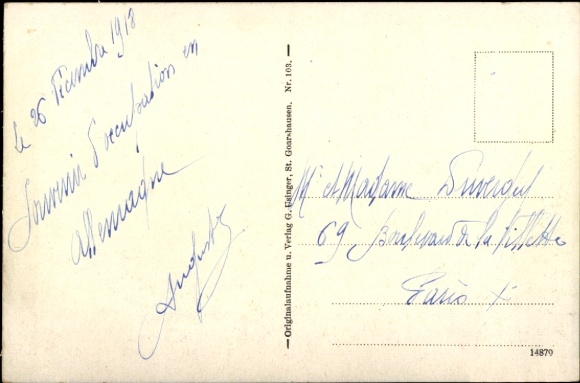 Le 26 Décembre 1918
Souvenir d'occupation en
Allemagne
Auguste
— Originalaufnahme u. Verlag G. Esinger, St. Goarshausen. Nr. 103. —
Mr et Madame
69 Boulevard de la Villette
Paris X
14879